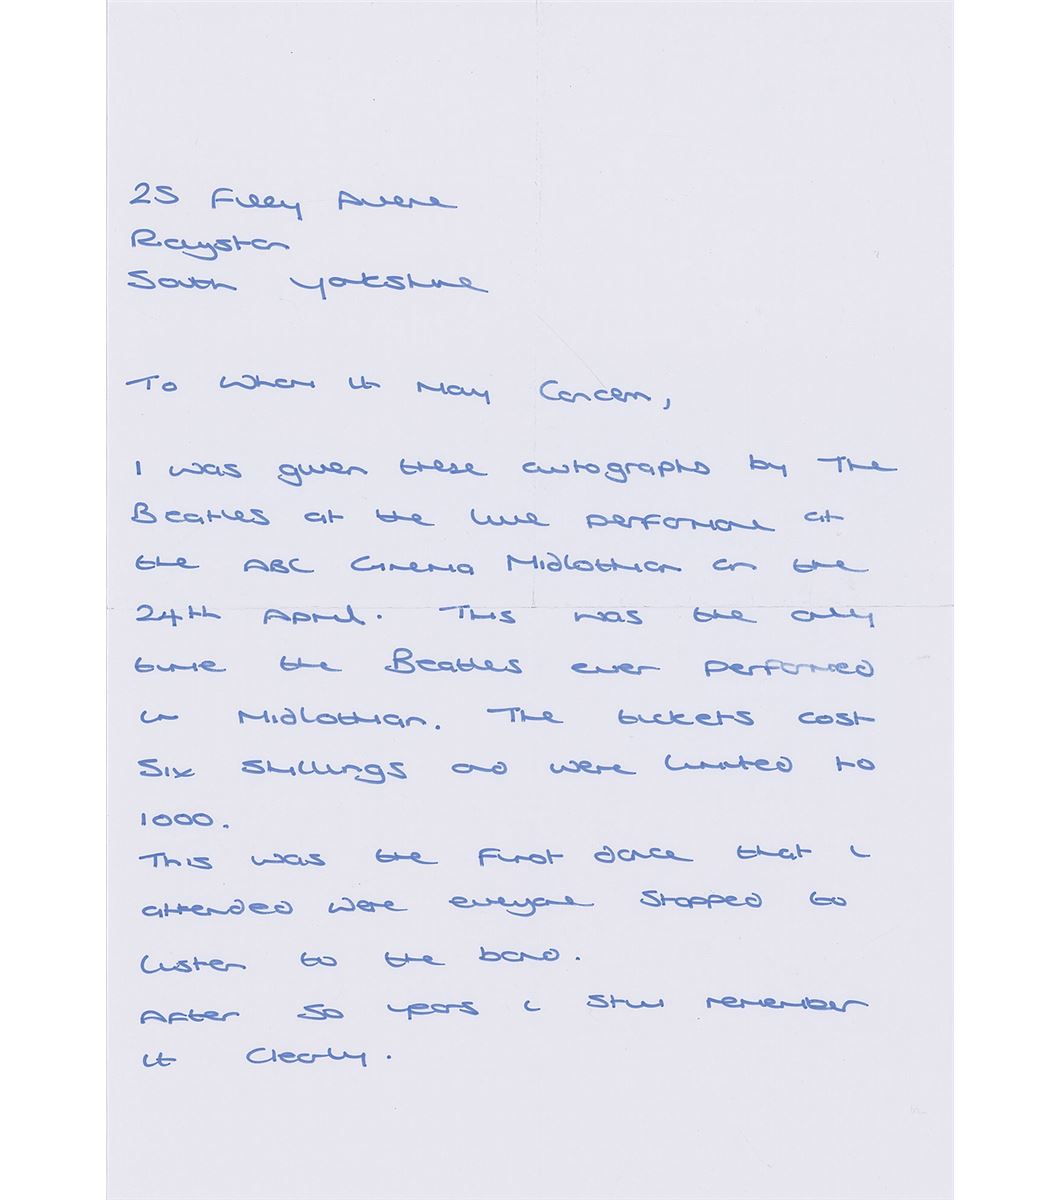 25 Filey Avenue
Royston
South Yorkshire
To Whom it May Concern,
I was given these autographs by The
Beatles at the live performance at
the ABC Cinema Midlothian on the
24th April. This was the only
time the Beatles ever performed
in Midlothian. The tickets cost
Six Shillings and were limited to
1000.
This was the first dance that i
attended were everyone stopped to
listen to the band.
After 50 years i still remember
it clearly.